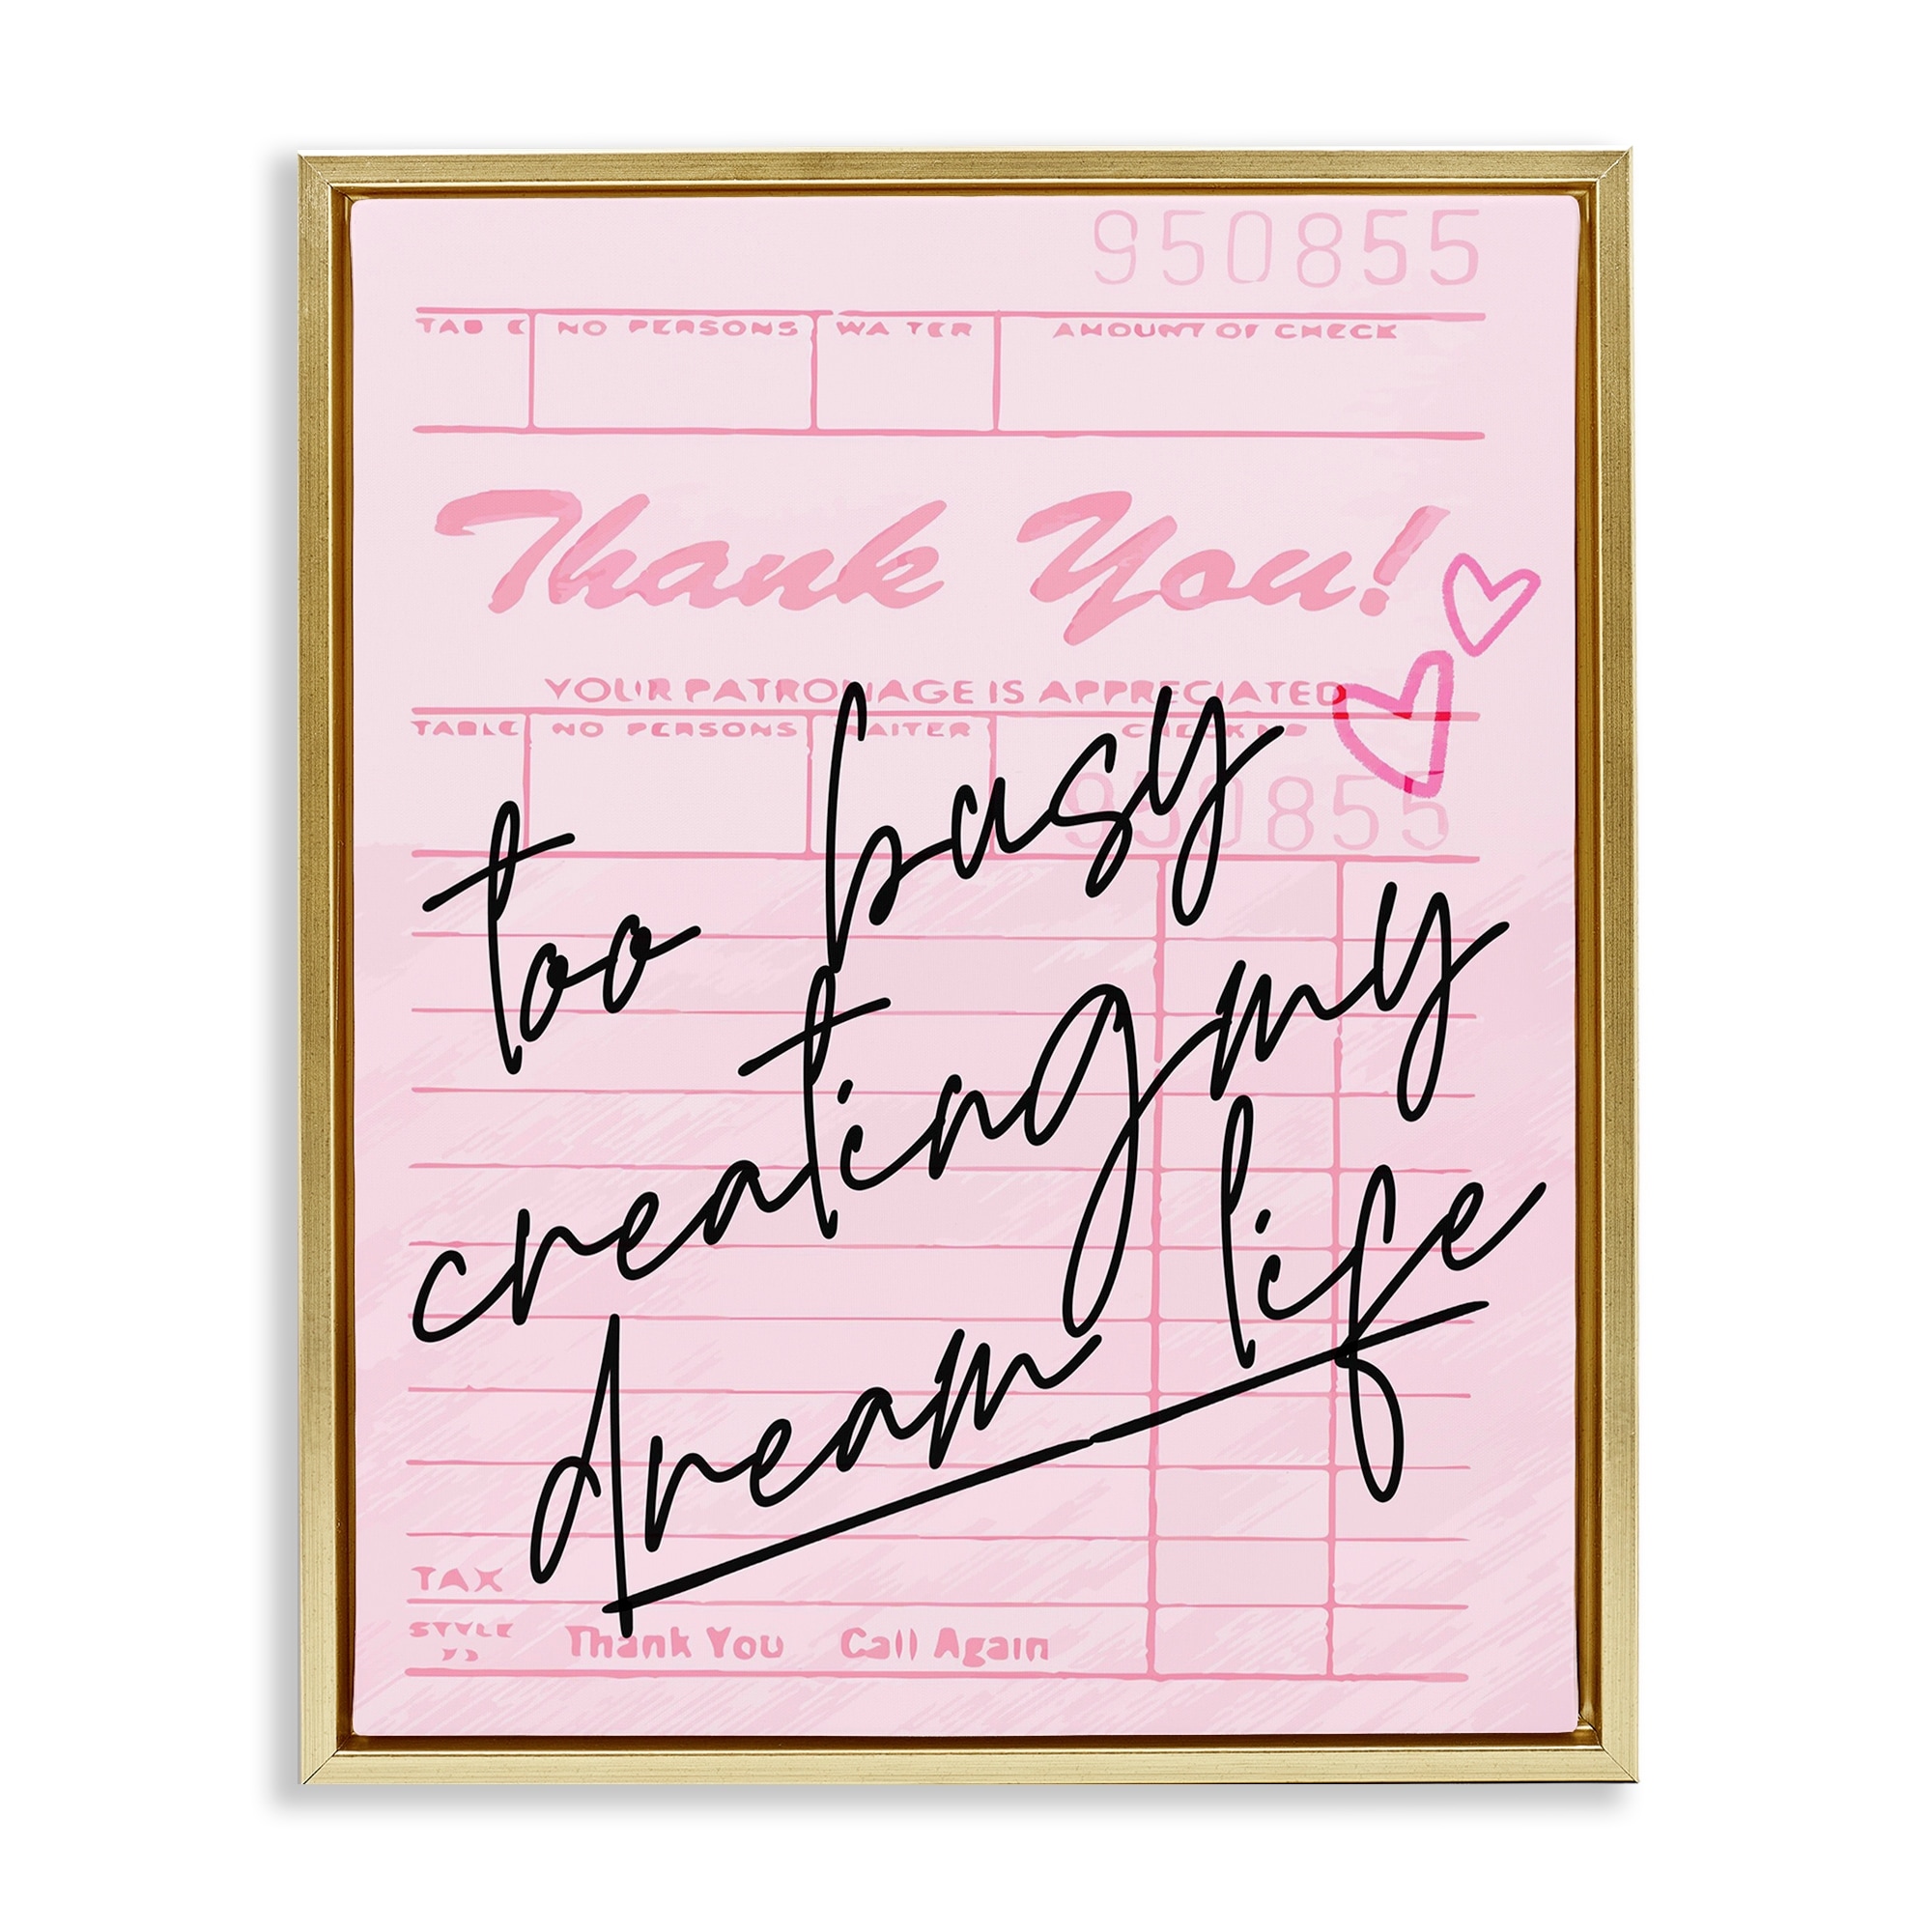 950855
TABLE NO PERSONS WAITER AMOUNT OF CHECK
Thank You!
YOUR PATRONAGE IS APPRECIATED
TABLE NO PERSONS WAITER CHECK NO
950855
too busy
creating my
dream life
TAX
STYLE
Thank You Call Again